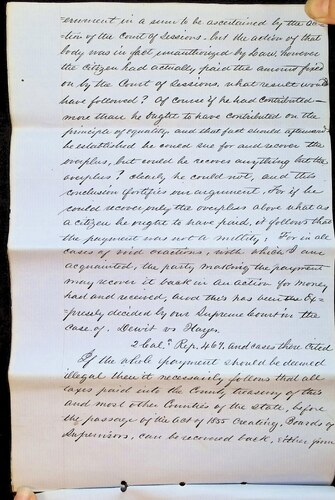 ernment in a sum to be ascertained by the ac=
tion of the Court of Sessions. but the action of that
body was in fact, unauthorized by Law, however
the citizen had actually paid the amount fixed
on by the Court of Sessions. what result would
have followed? Of course if he had contributed
more than he ought to have contributed on the
principle of equality, and that fact should afterwards
be established he could sue for and recover the
overplus, but could he recover anything but the
overplus? clearly he could not, and this
conclusion fortifies our argument. For if he
could recover only the overplus above what as
a citizen he ought to have paid, it follows that
the payment was not a nullity. For in all
cases of void exactions, with which I am
acquainted, the party making the payment
may recover it back in an action for money
had and received, and this has been ex=
=pressly decided by our Supreme Court in the
case of. Dewit vs Hays.
2 Cal. Rep. 469. and cases there cited
If the whole payment should be deemed
illegal then it necessarily follows that all
taxes paid into the County treasury of this
and most other Counties of the State, before
the passage of the Act of 1855 creating, Boards of
Supervisors, can be recovered back, either from